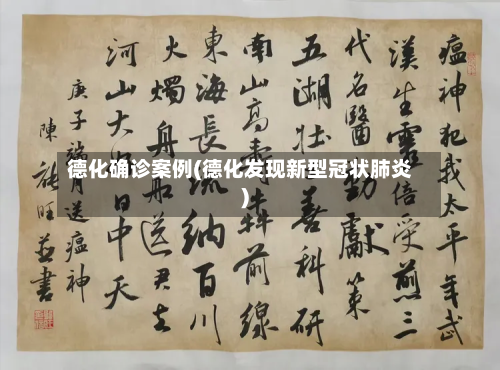 德化确诊案例(德化发现新型冠状肺炎
)
瘟神犯我太平年武
漢生靈倍受煎三
代名醫獻策
五湖壯善科研
南山高前線
東海長流納百川
火燭舟船送君去
河山大日中天
庚子月送瘟神
陳旺並書